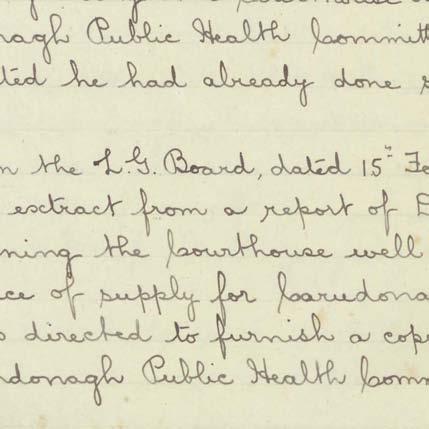 nagh Public Health Committ
ted he had already done s
n the L.G. Board, dated 15th Fe
extract from a report of D
ning the Courthouse well
ce of supply for Carndona
s directed to furnish a cop
ndonagh Public Health Comm